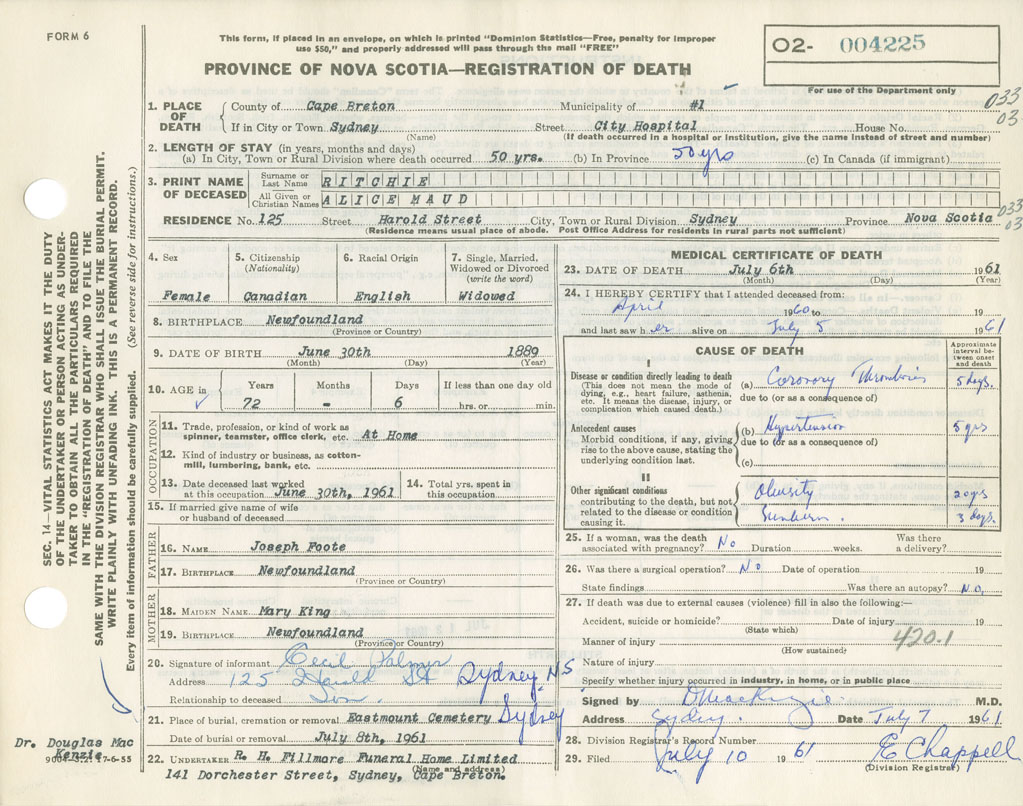 FORM 6
This form, if placed in an envelope, on which is printed "Dominion Statistics—Free, penalty for improper
use $50," and properly addressed will pass through the mail "FREE"
O2- 004225
PROVINCE OF NOVA SCOTIA—REGISTRATION OF DEATH
For use of the Department only
1. PLACE OF DEATH County of Cape Breton Municipality of #1 033
If in City or Town Sydney Street City Hospital House No. 03
(Name) (If death occurred in a hospital or institution, give the name instead of street and number)
2. LENGTH OF STAY (in years, months and days)
(a) In City, Town or Rural Division where death occurred 50 yrs. (b) In Province 50 yrs (c) In Canada (if immigrant)
3. PRINT NAME OF DECEASED Surname or Last Name RITCHIE
All Given or Christian Names ALICE MAUD
RESIDENCE No. 125 Street Harold Street City, Town or Rural Division Sydney Province Nova Scotia 033
(Residence means usual place of abode. Post Office Address for residents in rural parts not sufficient) 03
4. Sex
Female
5. Citizenship
(Nationality)
Canadian
6. Racial Origin
English
7. Single, Married,
Widowed or Divorced
(write the word)
Widowed
8. BIRTHPLACE Newfoundland
(Province or Country)
9. DATE OF BIRTH June 30th 1889
(Month) (Day) (Year)
10. AGE in Years Months Days If less than one day old
72 - 6 hrs. or min.
OCCUPATION
11. Trade, profession, or kind of work as
spinner, teamster, office clerk, etc. At Home
12. Kind of industry or business, as cotton-
mill, lumbering, bank, etc.
13. Date deceased last worked
at this occupation June 30th, 1961
14. Total yrs. spent in
this occupation
15. If married give name of wife
or husband of deceased
FATHER
16. NAME Joseph Foote
17. BIRTHPLACE Newfoundland
(Province or Country)
MOTHER
18. MAIDEN NAME Mary King
19. BIRTHPLACE Newfoundland
(Province or Country)
20. Signature of informant Cecil Palmer
Address 125 Harold St Sydney N.S
Relationship to deceased Son
21. Place of burial, cremation or removal Eastmount Cemetery Sydney
Date of burial or removal July 8th, 1961
22. UNDERTAKER R. H. Fillmore Funeral Home Limited
(Name and address)
141 Dorchester Street, Sydney, Cape Breton.
MEDICAL CERTIFICATE OF DEATH
23. DATE OF DEATH July 6th 1961
(Month) (Day) (Year)
24. I HEREBY CERTIFY that I attended deceased from:
April 1960 to 19
and last saw h er alive on July 5 1961
CAUSE OF DEATH
Approximate
interval be-
tween onset
and death
I
Disease or condition directly leading to death
(This does not mean the mode of
dying, e.g., heart failure, asthenia,
etc. It means the disease, injury, or
complication which caused death.)
(a) Coronary Thrombosis 5 days.
due to (or as a consequence of)
Antecedent causes
Morbid conditions, if any, giving
rise to the above cause, stating the
underlying condition last.
(b) Hypertension 5 yrs
due to (or as a consequence of)
(c)
II
Other significant conditions
contributing to the death, but not
related to the disease or condition
causing it.
Obesity 20 yrs
Sunburn. 3 days.
25. If a woman, was the death
associated with pregnancy? No Duration weeks. Was there
a delivery?
26. Was there a surgical operation? No Date of operation 19
State findings Was there an autopsy? No.
27. If death was due to external causes (violence) fill in also the following:—
Accident, suicide or homicide? Date of injury 19
(State which)
Manner of injury 420.1
(How sustained)
Nature of injury
Specify whether injury occurred in industry, in home, or in public place
Signed by D MacKenzie M.D.
Address Sydney. Date July 7 1961
28. Division Registrar's Record Number
29. Filed July 10 1961 E Chappell
(Division Registrar)
SEC. 14—VITAL STATISTICS ACT MAKES IT THE DUTY
OF THE UNDERTAKER OR PERSON ACTING AS UNDER-
TAKER TO OBTAIN ALL THE PARTICULARS REQUIRED
IN THE "REGISTRATION OF DEATH" AND TO FILE THE
SAME WITH THE DIVISION REGISTRAR WHO SHALL ISSUE THE BURIAL PERMIT.
WRITE PLAINLY WITH UNFADING INK. THIS IS A PERMANENT RECORD.
Every item of information should be carefully supplied. (See reverse side for instructions.)
Dr. Douglas Mac
Kenzie